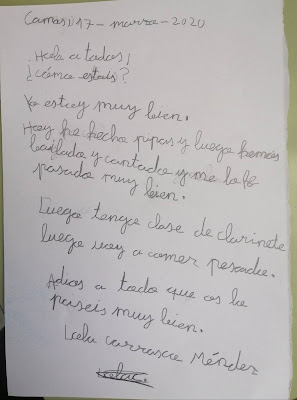 Camas, 17-marzo-2020
¡Hola a todos!
¿cómo estáis?
Yo estoy muy bien.
Hoy he hecho pipas y luego hemos
bailado y cantado y me lo he
pasado muy bien.
Luego tengo clase de clarinete
luego voy a comer pescado.
Adios a todo que os lo
paseis muy bien.
Lola Carrasco Méndez